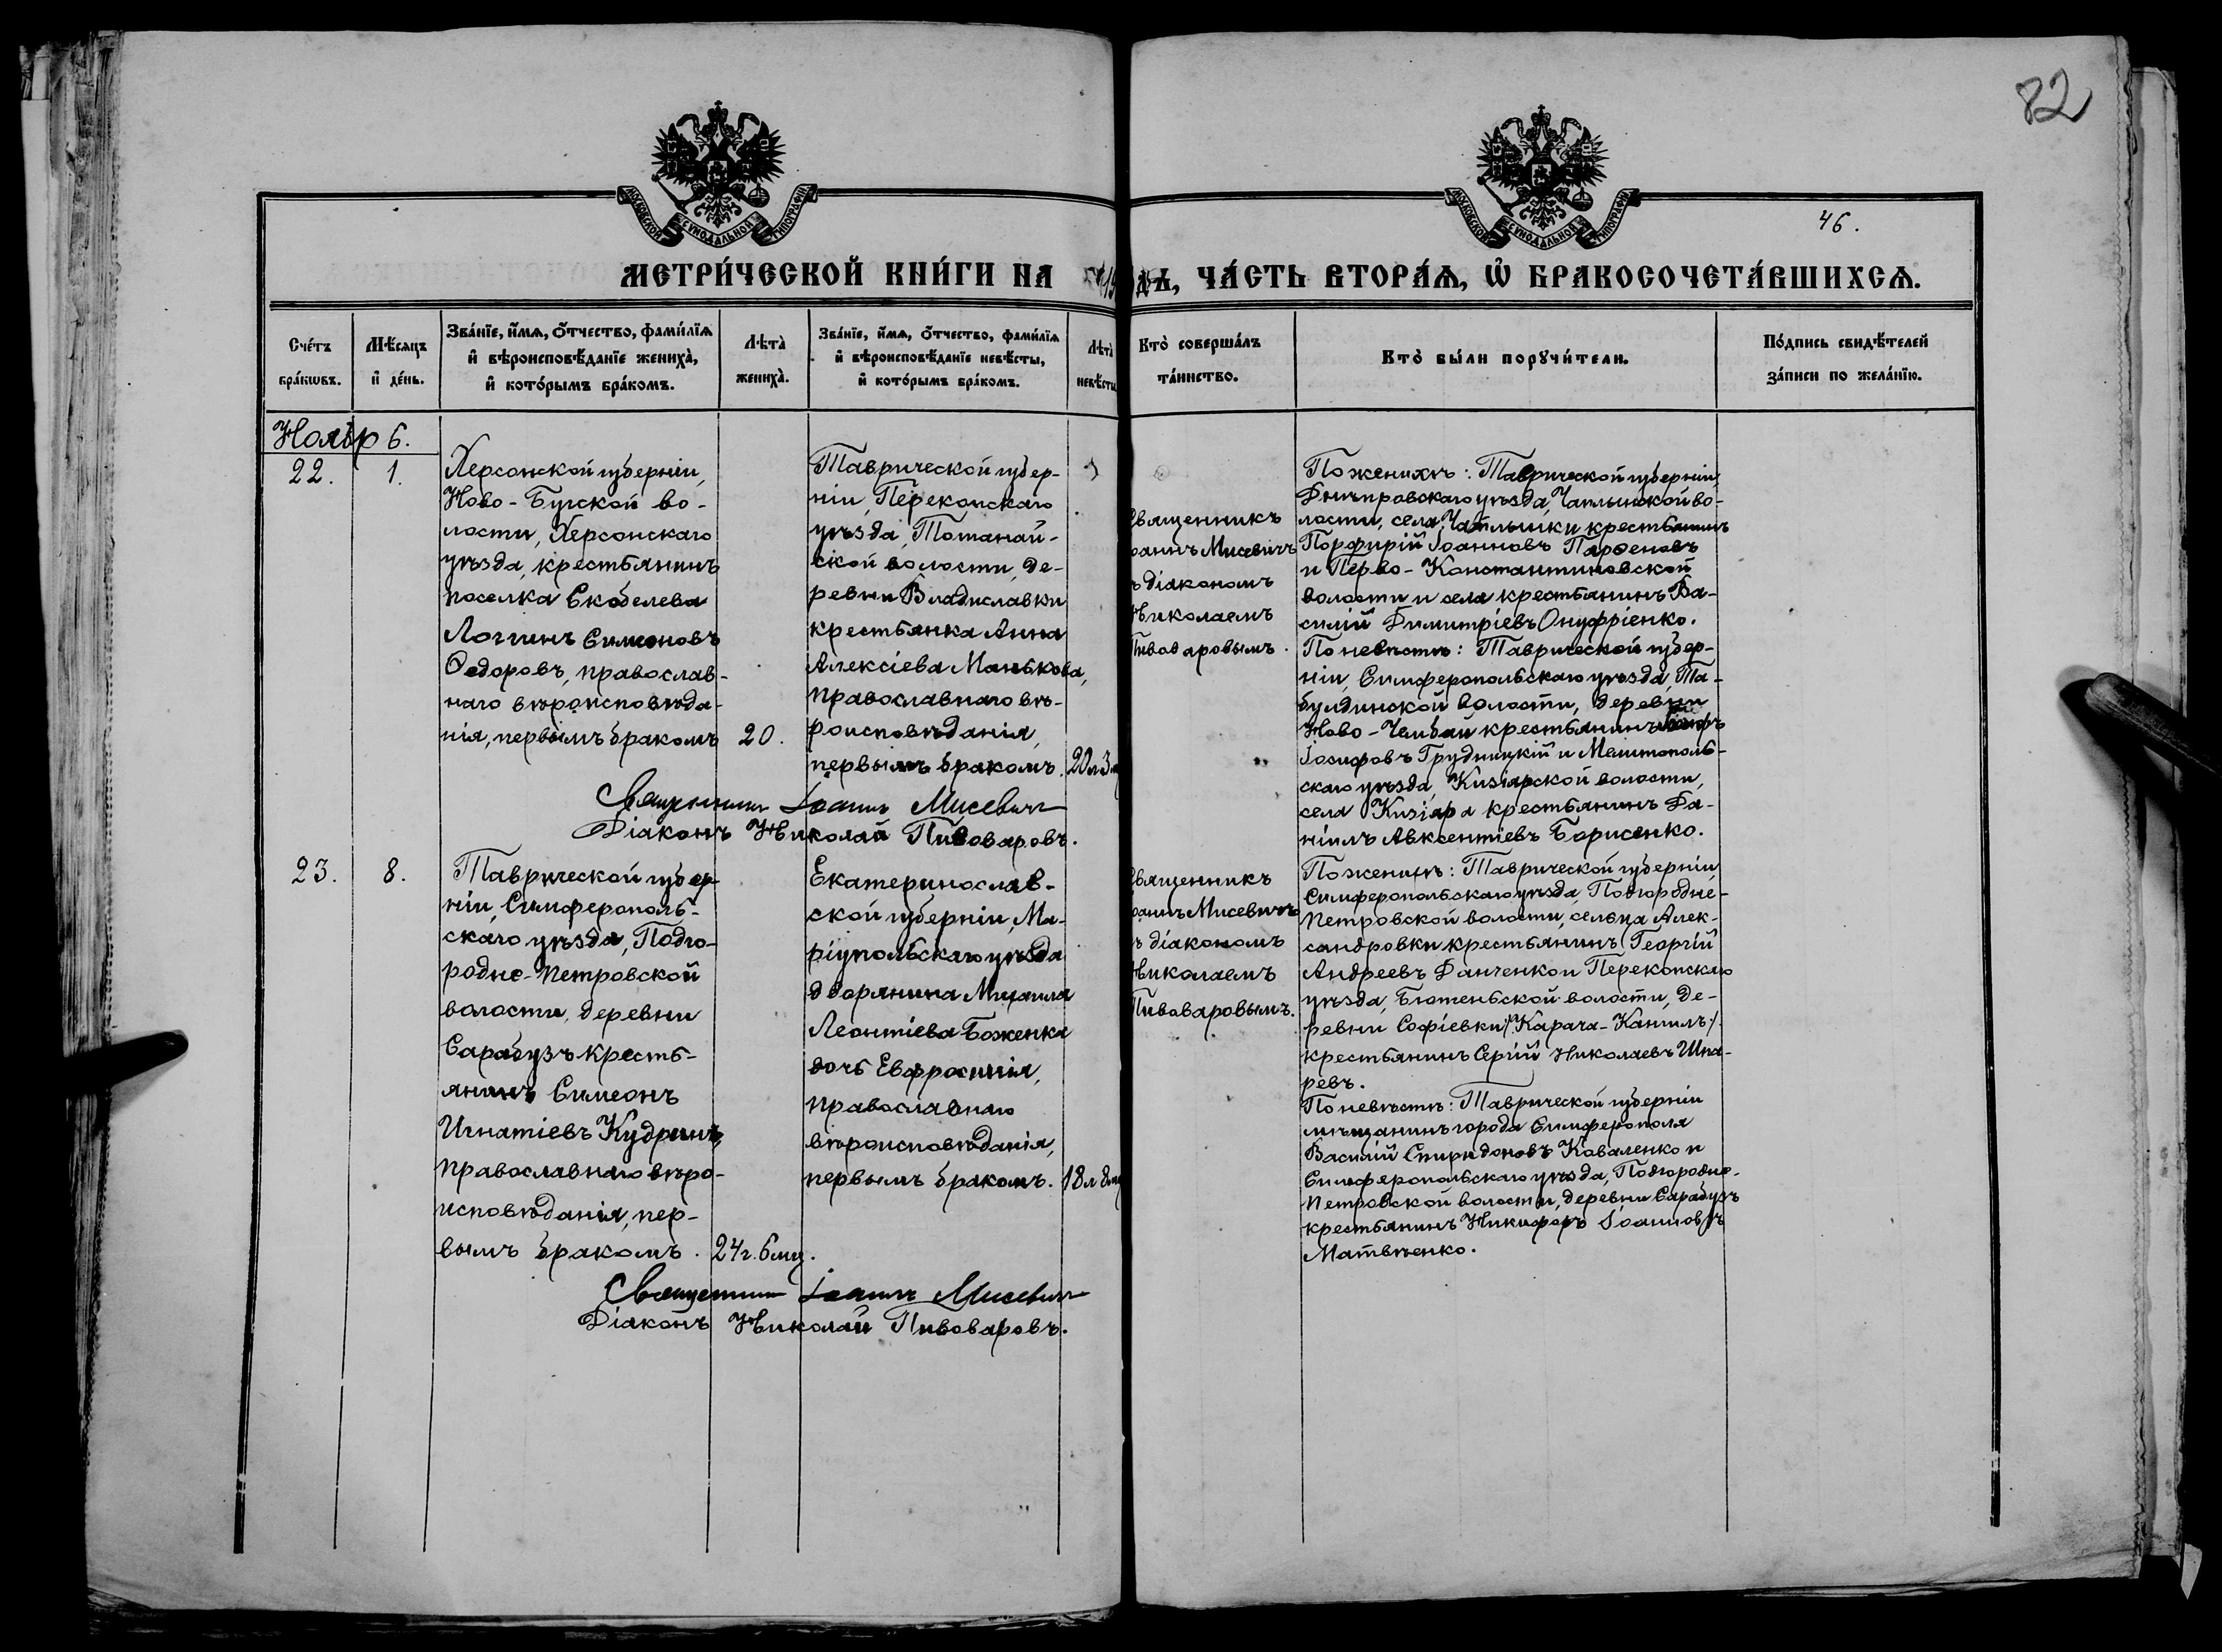 82
МОСКОВСКОЙ СѴНОДАЛЬНОЙ ТИПОГРАФІИ
МОСКОВСКОЙ СѴНОДАЛЬНОЙ ТИПОГРАФІИ
46.
МЕТРИ́ЧЕСКОЙ КНИ́ГИ НА
ДЪ, ЧА́СТЬ ВТОРА́Ѧ, Ѡ҆ БРАКОСОЧЕТА́ВШИХСѦ.
Сче́тъ
бра́кѡвъ.
Мѣ́сѧцъ
и҆ де́нь.
Зва́нїе, и҆́мѧ, ѻ҆́тчество, фами́лїѧ
и҆ вѣроисповѣ́данїе жениха̀,
и҆ кото́рымъ бра́комъ.
Лѣта̀
жениха̀.
Зва́нїе, и҆́мѧ, ѻ҆́тчество, фами́лїѧ
и҆ вѣроисповѣ́данїе невѣ́сты,
и҆ кото́рымъ бра́комъ.
Лѣта̀
невѣ́сты
Кто̀ соверша́лъ
та́инство.
Кто̀ бы́ли порꙋчи́тели.
По́дпись свидѣ́телей
за́писи по жела́нїю.
22.
1.
Херсонской губерніи,
Ново-Бугской во-
лости, Херсонскаго
уѣзда, крестьянинъ
поселка Скобелева
Логгинъ Симеоновъ
Ѳедоровъ, православ-
наго вѣроисповѣда-
нія, первымъ бракомъ
20.
Таврической губер-
ніи, Перекопскаго
уѣзда, Тотанай-
ской волости, де-
ревни Владиславки
крестьянка Анна
Алексіева Манькова,
православнаго вѣ-
роисповѣданія,
первымъ бракомъ.
20 л 3 м
Священникъ Іоаннъ Мисевичъ
Діаконъ Николай Пивоваровъ.
вященникъ
оаннъ Мисевичъ
ъ діакономъ
Николаемъ
Пивоваровымъ.
По женихѣ: Таврической губерніи,
Днѣпровскаго уѣзда, Чаплинской во-
лости, села Чаплинки крестьянинъ
Порфирій Іоанновъ Парѳеновъ
и Перво-Константиновской
волости и села крестьянинъ Ва-
силій Димитріевъ Онуфріенко.
По невѣстѣ: Таврической губер-
ніи, Симферопольскаго уѣзда, Та-
булдинской волости, деревни
Ново-Чембай крестьянинъ
Іосифовъ Грудницкій и Мелитополь-
скаго уѣзда, Кизіярской волости,
села Кизіяра крестьянинъ Да-
ніилъ Авксентіевъ Борисенко.
23.
8.
Таврической губер-
ніи, Симферополь-
скаго уѣзда, Подго-
родне-Петровской
волости, деревни
Сарабузъ кресть-
янинъ Симеонъ
Игнатіевъ Кудринъ,
православнаго вѣро-
исповѣданія, пер-
вымъ бракомъ.
24 г. 6 мц.
Екатеринослав-
ской губерніи, Ма-
ріупольскаго уѣзда
дворянина Михаила
Леонтіева Боженка
дочь Евфросинія,
православнаго
вѣроисповѣданія,
первымъ бракомъ.
18 л 8 мц
Священникъ Іоаннъ Мисевичъ
Діаконъ Николай Пивоваровъ.
вященникъ
оаннъ Мисевичъ
ъ діакономъ
Николаемъ
Пивоваровымъ.
По женихѣ: Таврической губерніи,
Симферопольскаго уѣзда, Подгородне-
Петровской волости, сельца Алек-
сандровки крестьянинъ Георгій
Андреевъ Данченко и Перекопскаго
уѣзда, Бютеньской волости, де-
ревни Софіевки /:Карача-Кангилъ:/
крестьянинъ Сергій Николаевъ Шпа-
ревъ.
По невѣстѣ: Таврической губерніи
мѣщанинъ города Симферополя
Василій Спиридоновъ Коваленко и
Симферопольскаго уѣзда, Подгородне-
Петровской волости, деревни Сарабузъ
крестьянинъ Никифоръ Іоанновъ
Матвѣенко.